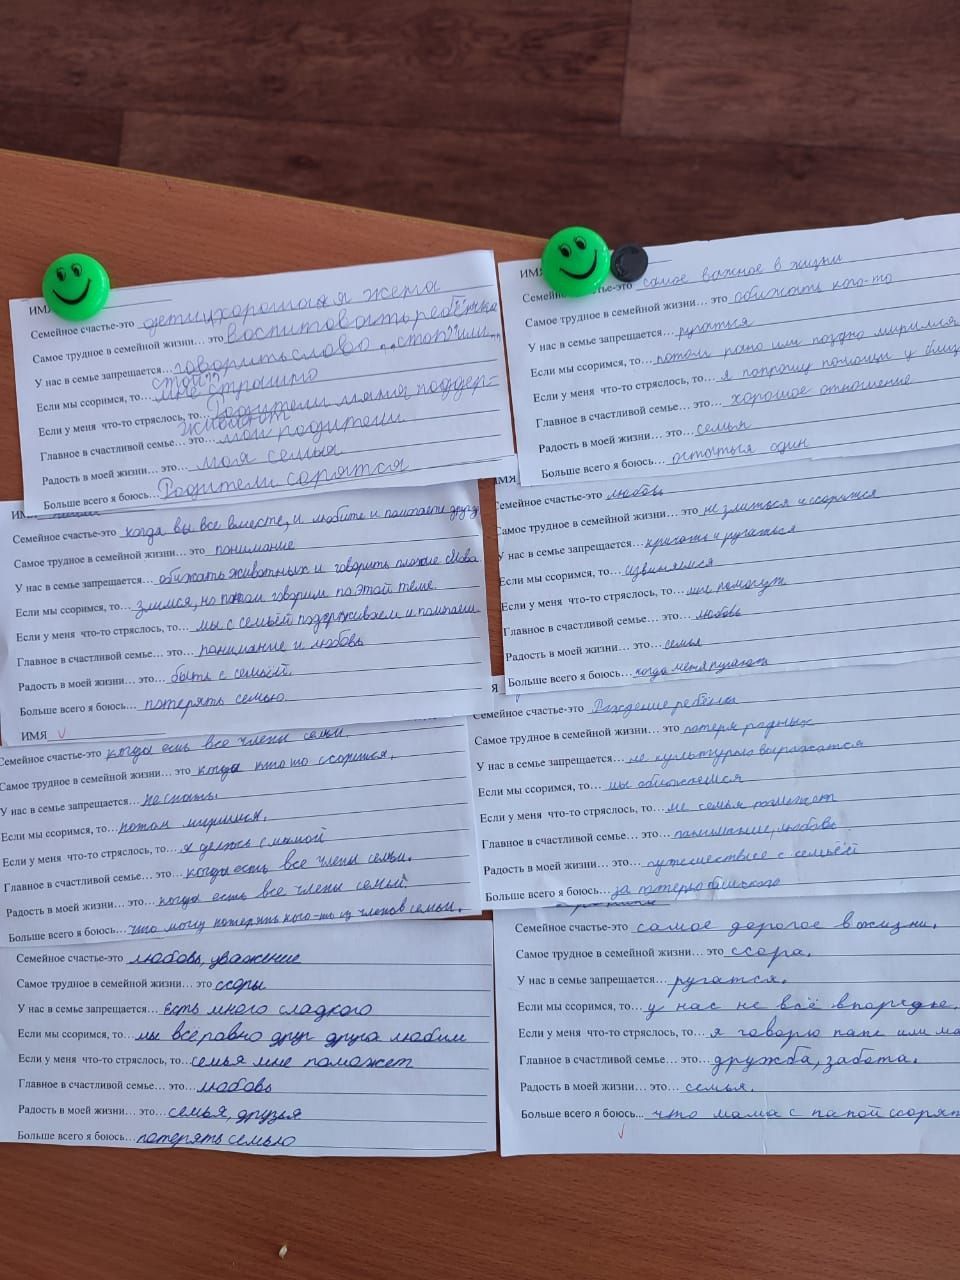 ИМ
Семейное счастье-это дети,хорошая жена
Самое трудное в семейной жизни… это воспитовать ребёнка
У нас в семье запрещается… говорить слово ,,стоп" или ,,
стой"
Если мы ссоримся, то… мне страшно
Если у меня что-то стряслось, то… Родители меня поддер-
живают
Главное в счастливой семье… это… мои родители
Радость в моей жизни… это… моя семья
Больше всего я боюсь… Родители сорятся
ИМ
Семейное счастье-это когда вы все вместе, и любите и помогаете друг д
Самое трудное в семейной жизни… это понимание
У нас в семье запрещается… обижать животных и говорить плохие слова
Если мы ссоримся, то… злимся, но потом говорим по этой теме.
Если у меня что-то стряслось, то… мы с семьёй поддерживаем и помогаем
Главное в счастливой семье… это… понимание и любовь
Радость в моей жизни… это… быть с семьёй.
Больше всего я боюсь… потерять семью.
ИМЯ
Семейное счастье-это когда есь все члены семьи.
Самое трудное в семейной жизни… это когда кто то ссорится.
У нас в семье запрещается… не спать.
Если мы ссоримся, то… потом миримся.
Если у меня что-то стряслось, то… я делюсь с мамой
Главное в счастливой семье… это… когда есь все члены семьи.
Радость в моей жизни… это… когда есь все члены семьи.
Больше всего я боюсь… что могу потерять кого-то из членов семьи.
Семейное счастье-это любовь, уважение
Самое трудное в семейной жизни… это ссоры
У нас в семье запрещается… есть много сладкого
Если мы ссоримся, то… мы всеравно друг друга любим
Если у меня что-то стряслось, то… семья мне поможет
Главное в счастливой семье… это… любовь
Радость в моей жизни… это… семья, друзья
Больше всего я боюсь… потерять семью
ИМЯ
Семей тье-это самое важное в жизни
Самое трудное в семейной жизни… это обижать кого-то
У нас в семье запрещается… ругаться
Если мы ссоримся, то… потом рано или поздно миримся
Если у меня что-то стряслось, то… я попрошу помощи у близ
Главное в счастливой семье… это… хорошое отношение
Радость в моей жизни… это… семья
Больше всего я боюсь… остаться один
ИМЯ
Семейное счастье-это любовь
Самое трудное в семейной жизни… это не злиться и ссорится
У нас в семье запрещается… кричать и ругаться
Если мы ссоримся, то… извинямся
Если у меня что-то стряслось, то… мне помогут
Главное в счастливой семье… это… любовь
Радость в моей жизни… это… семья
Больше всего я боюсь… когда меня пугают
Я
Семейное счастье-это Рождение ребёнка
Самое трудное в семейной жизни… это потеря родных
У нас в семье запрещается… не культурно выражатся
Если мы ссоримся, то… мы обижаемся
Если у меня что-то стряслось, то… ме семья поможет
Главное в счастливой семье… это… понимание, любовь
Радость в моей жизни… это… путешествие с семьёй
Больше всего я боюсь… за потерю близкого
Семейное счастье-это самое дорогое в жизни.
Самое трудное в семейной жизни… это ссора.
У нас в семье запрещается… ругатся.
Если мы ссоримся, то… у нас не всё впорядке.
Если у меня что-то стряслось, то… я говорю папе или ма
Главное в счастливой семье… это… дружба, забота.
Радость в моей жизни… это… семья.
Больше всего я боюсь… что мама с папой ссорят